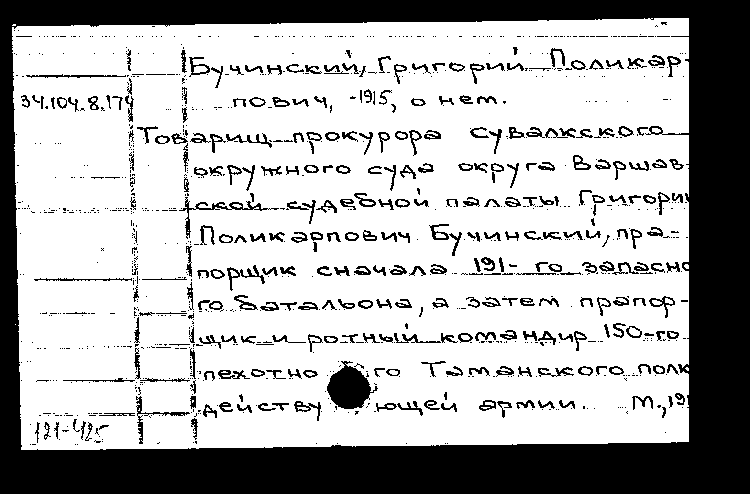 Бучинский, Григорий Поликар-
34.104.8.174 пович, -1915, о нем.
Товарищ прокурора сувалкского
окружного суда округа Варшав-
ской судебной палаты Григорий
Поликарпович Бучинский, пра-
порщик сначала 191-го запасно
го батальона, а затем прапор-
щик и ротный командир 150-го
пехотно го Таманского полк
действу ющей армии. М., 191
121-425